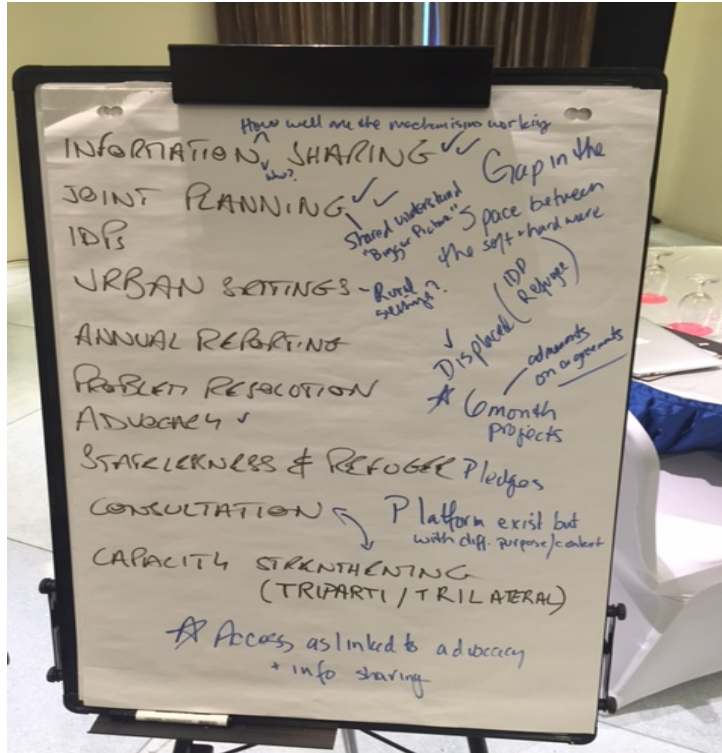 How well are the mechanisms working
INFORMATION SHARING ✓✓
who?
JOINT PLANNING ✓ ✓
Shared understand
"Bigger Picture"
Gap in the
space between
the soft + hardware
IDPs
URBAN SETTINGS - Rural
settings?
✓ Displaced (IDP
Refugee)
ANNUAL REPORTING
PROBLEM RESOLUTION
☆ 6 month
projects
on agreements
ADVOCACY ✓
STATELERNESS & REFUGEE Pledges
CONSULTATION
Platform exist but
with diff. purpose/content
CAPACITY STRENTHENING
(TRIPARTI / TRILATERAL)
☆ Access as linked to advocacy
+ info sharing